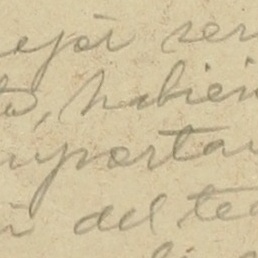 ejor ser
to, habien
mportan
n del te